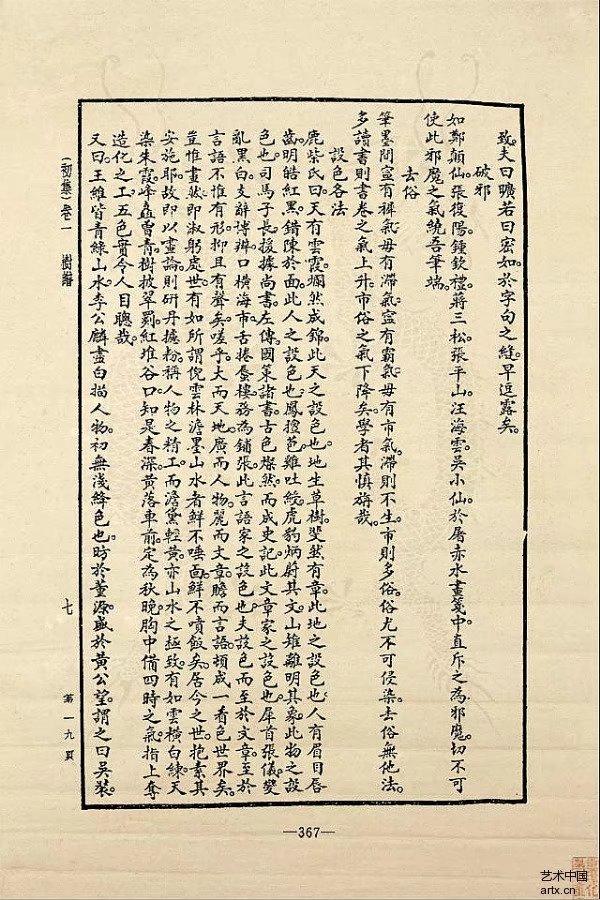 致夫曰瞻若曰宏如於字句之縫早逗露矣
破邪
如鄭顛仙張復陽鍾欽禮蔣三松張平山汪海雲吳小仙於屠赤水畫箋中直斥之為邪魔切不可
使此邪魔之氣繞吾筆端
去俗
筆墨間寧有稚氣毋有滯氣寧有霸氣毋有市氣滯則不生市則多俗俗尤不可侵染去俗無他法
多讀書則書卷之氣上升市俗之氣下降矣學者其慎旃哉
設色各法
鹿柴氏曰天有雲霞爛然成錦此天之設色也地生草樹斐然有章此地之設色也人有眉目唇
齒明皓紅黑錯陳於面此人之設色也鳳擅苞雞吐綬虎豹炳蔚其文山雉離明其象此物之設
色也司馬子長援據尚書左傳國策諸書古色燦然而成史記此文章家之設色也犀首張儀變
亂黑白支辭博辨口橫海市舌捲蜃樓務為鋪張此言語家之設色也夫設色而至於文章至於
言語不惟有形抑且有聲矣嗟乎大而天地廣而人物麗而文章贍而言語頓成一着色世界矣
豈惟畫然即淑躬處世有如所謂倪雲林澹墨山水者鮮不唾面鮮不噴飯矣居今之世抱素其
安施耶故即以畫論則研丹摛粉稱人物之精工而澹黛輕黃亦山水之極致有如雲橫白練天
染朱霞峰矗曾青樹披翠罽紅堆谷口知是春深黃落車前定為秋晚胸中備四時之氣指上奪
造化之工五色實令人目聰哉
又曰王維皆青綠山水李公麟盡白描人物初無淺絳色也昉於董源盛於黃公望謂之曰吳裝
(初集)卷一 樹譜 七 第一九頁
—367—
艺术中国
artx.cn